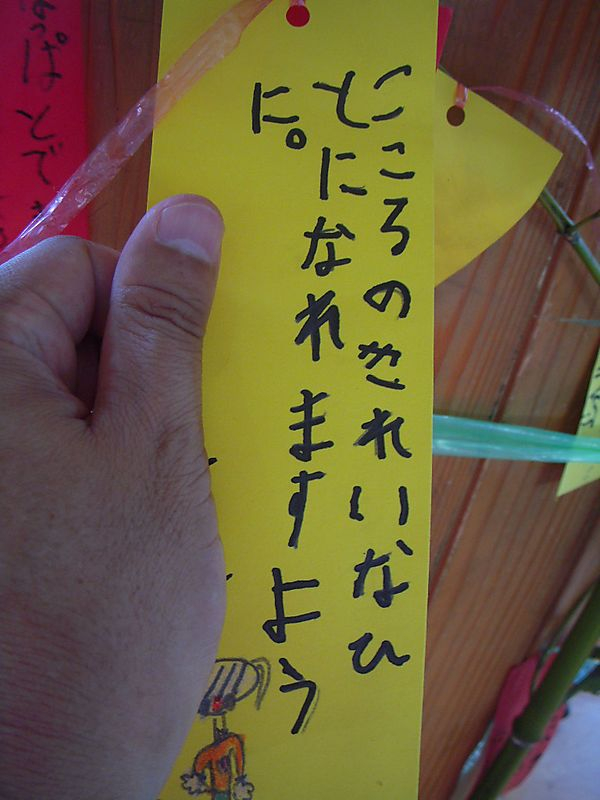 こころのきれいなひ
とになれますよう
に。
ぱとで